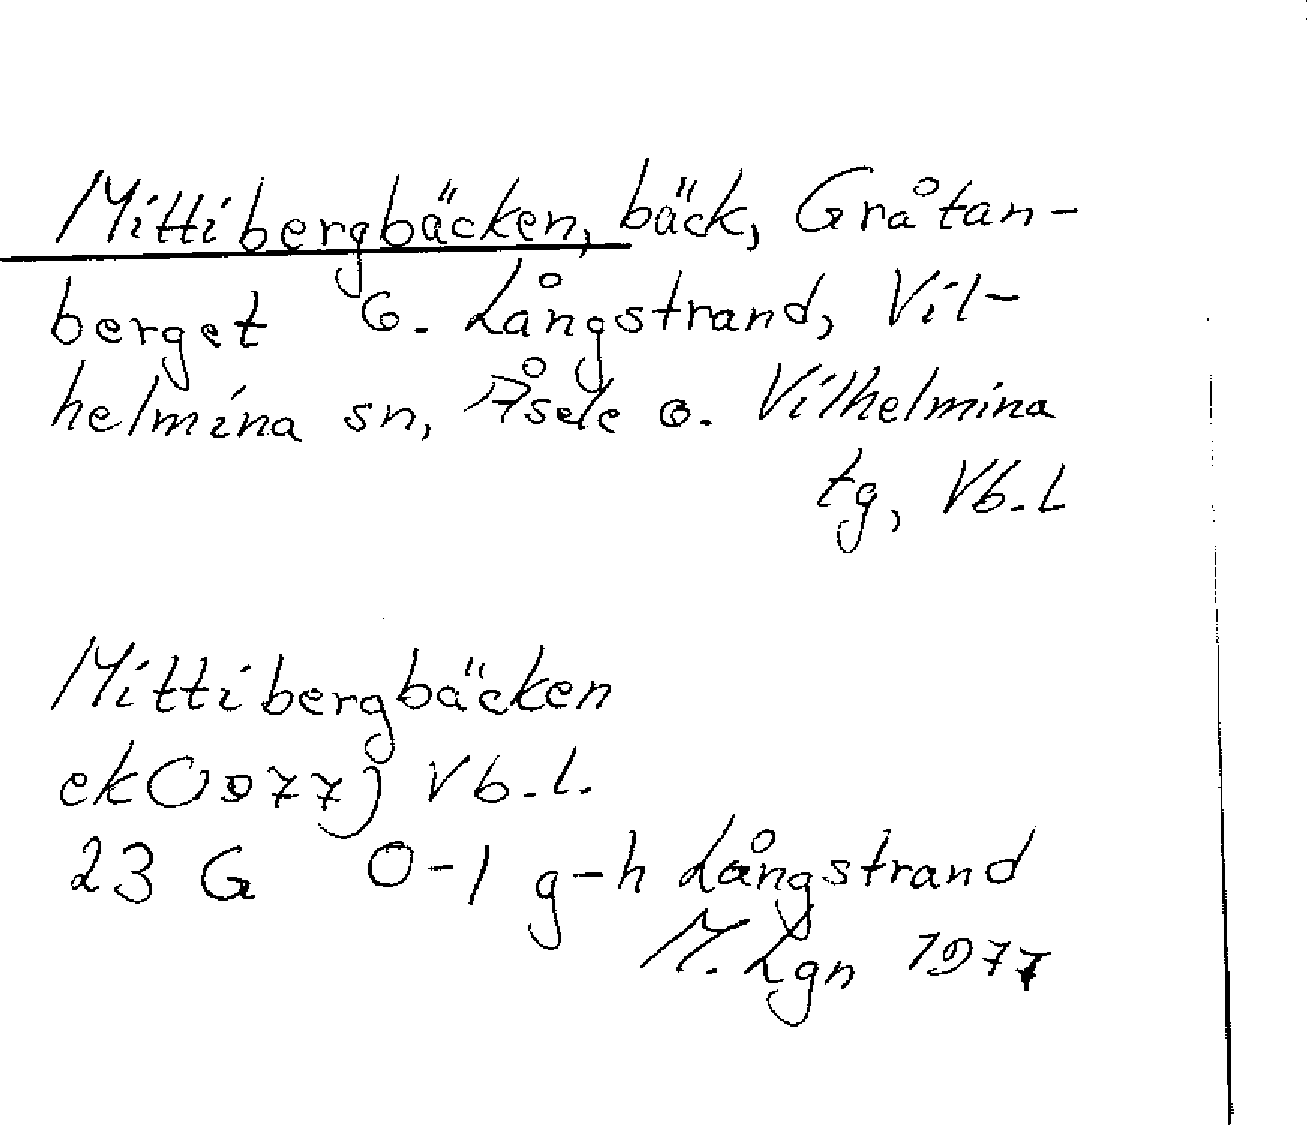 Mittibergbäcken, bäck, Gråtan-
berget G. Långstrand, Vil-
helmina sn, Åsele o. Vilhelmina
tg, Vb. L
Mittibergbäcken
ek (1977) Vb. l.
23 G 0-1 g-h Långstrand
M. Lgn 1977